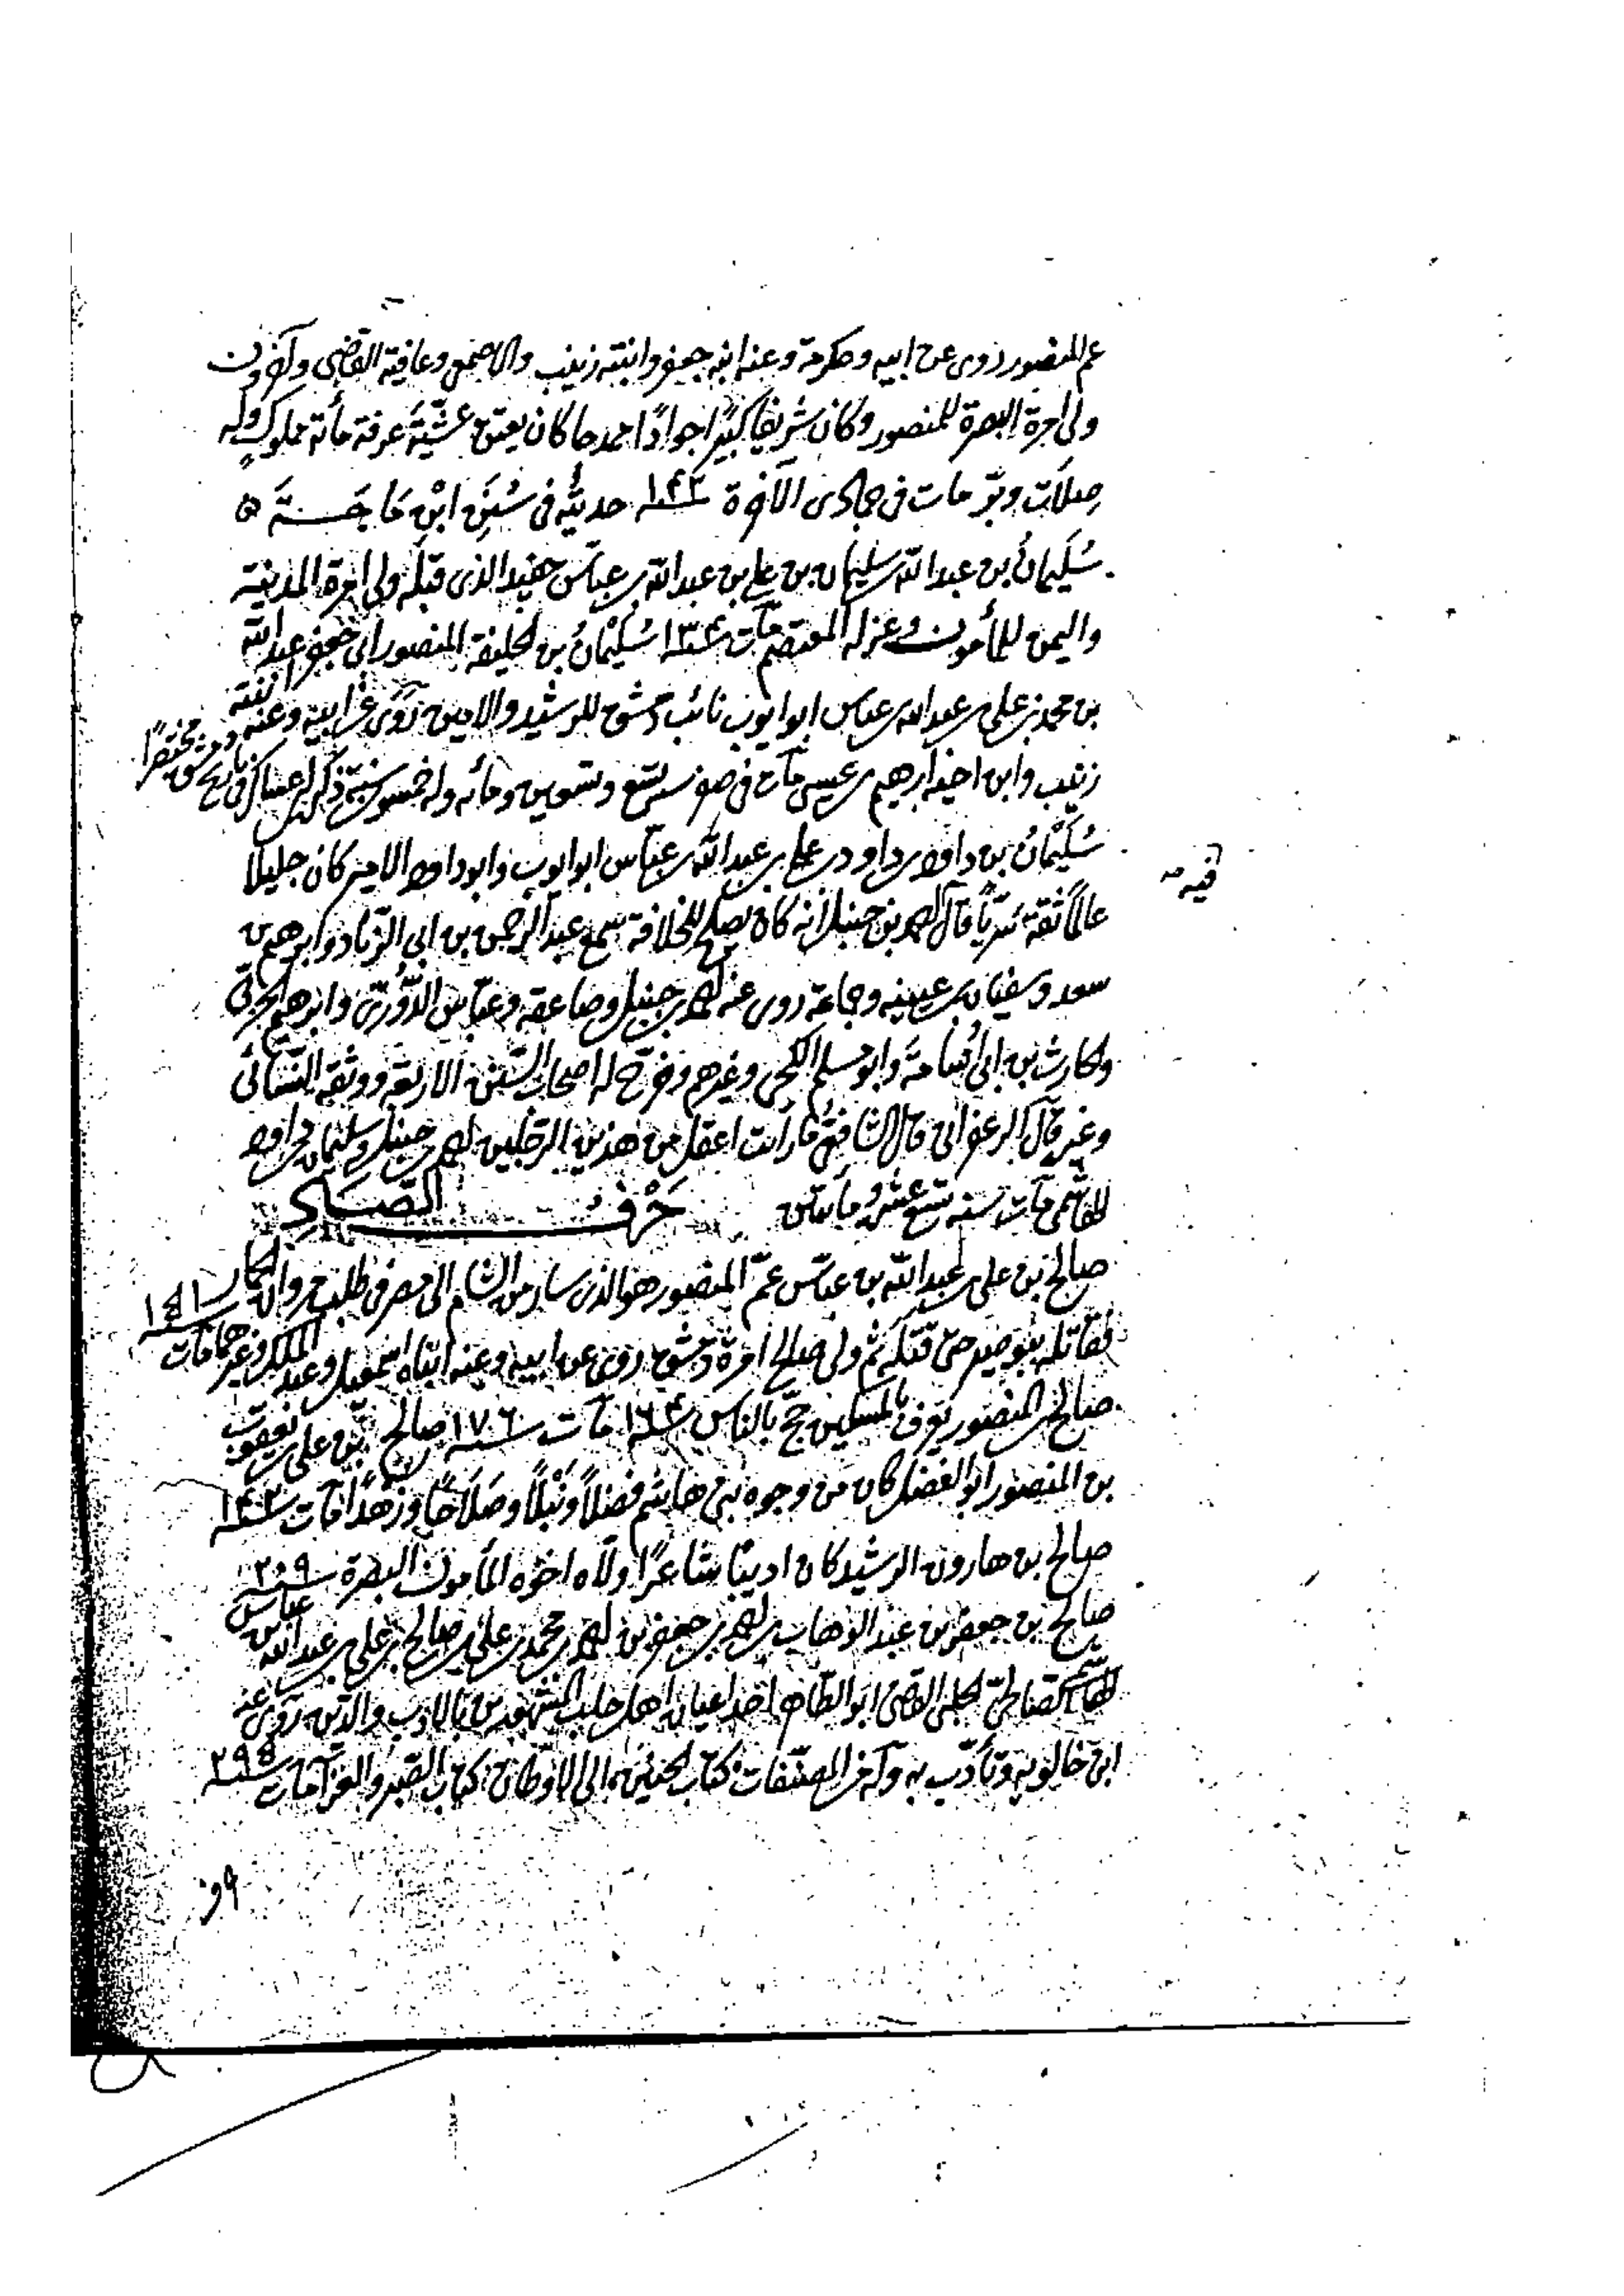 عم المنصور روى عن ابيه وعكرمة وعنه ابنه جعفر وابنته زينب والاصمعي وعافية القاضي وآخرون
ولى امرة البصرة للمنصور وكان شريفا كبيرًا جوادًا ممدحا كان يعتق عشيّةَ عرفة مائة مملوكٍ وله
صِلات وبرّ مات في جمادى الآخرة سنة ١٤٢ حديثُه في سُنَنِ ابْنِ مَاجَةَ ۵
سُلَيمانُ بن عبدالله بن سليمان بن علي بن عبدالله بن عباس حفيد الذى قبلَه ولى امرة المدينة
واليمن للمأمون وعزله المعتصم مات سنة ١٣٤ سُلَيْمَانُ بن الخليفة المنصور ابى جعفر عبدالله
بن محمد بن علي بن عبدالله بن عباس ابو ايوب نائب دمشق للرشيد والامين روى عن ابيه وعنه ابنته
زينب وابن اخيه ابرهيم بن عيسى مات في صفر سنة تسع وتسعين ومائه وله خمسون سنة ذكره ابن عساكر في تاريخ دمشق مختصرًا
سُلَيْمَانُ بن داود بن داود بن علي بن عبدالله بن عباس ابو ايوب وابو داود الامير كان جليلا
فيه
عالمًا ثقة سَرِيّا قال احمد بن حنبل انه كان يصلح للخلافة سمع عبدالرحمن بن ابى الزناد وابرهيم بن
سعد وسفيان بن عيينه وجماعة روى عنه احمد بن حنبل وصاعقه وعباس الدُّورىّ وابرهيم الحربى
والحارث بن ابى اُسامةَ وابو مسلم الكجى وغيرهم وخرّج له اصحاب السنن الاربعة ووثقه النسائى
وغيره قال الزعفرانى قال الشافعى ما رأيت اعقل من هذين الرجلين احمد بن حنبل وسليمان بن داود
الهاشمى مات سنه تسع عشر ومايتين حَرْفُ الصَّادِ
صالح بن على بن عبدالله بن عباس عمّ المنصور هو الذى سار من الشام الى مصر فى طلب مروان الحمار
فقاتله ببوصير حتى قتله ثم ولى صالح امرة دمشق روى عن ابيه وعنه ابناه اسمعيل وعبد الملك وغيرهما مات سنة ١٤١
صالح بن المنصور يعرف بالمسكين حجّ بالناس سنة ١٦٤ مات سنة ١٧٦ صالح بن على بن يعقوب
بن المنصور ابو الفضل كان من وجوه بنى هاشم فضلاً ونبلاً وصَلاحًا وزهدًا مات سنة ١٤٢
صالح بن هارون الرشيد كان اديبًا شاعرًا ولاّه اخوه المأمون البصرة سنة ٢٠٩
صالح بن جعفر بن عبد الوهاب بن احمد بن جعفر بن احمد بن محمد بن على بن صالح بن على بن عبدالله بن عباس
الهاشمى الصالحىّ الحلبى القاضى ابو الطاهر احد اعيان اهل حلب المشهورين بالادب والدين روى عن
ابن خالويه وتأدّب به وله من المصنفات كتاب الحنين الى الاوطان كتاب الصبر والعزا مات سنة ٢٩٥